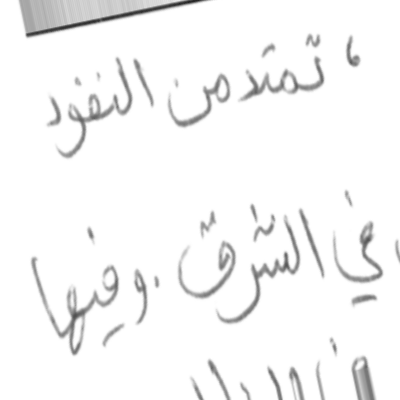 ، تمتد من النفود
في الشرق . وفيها